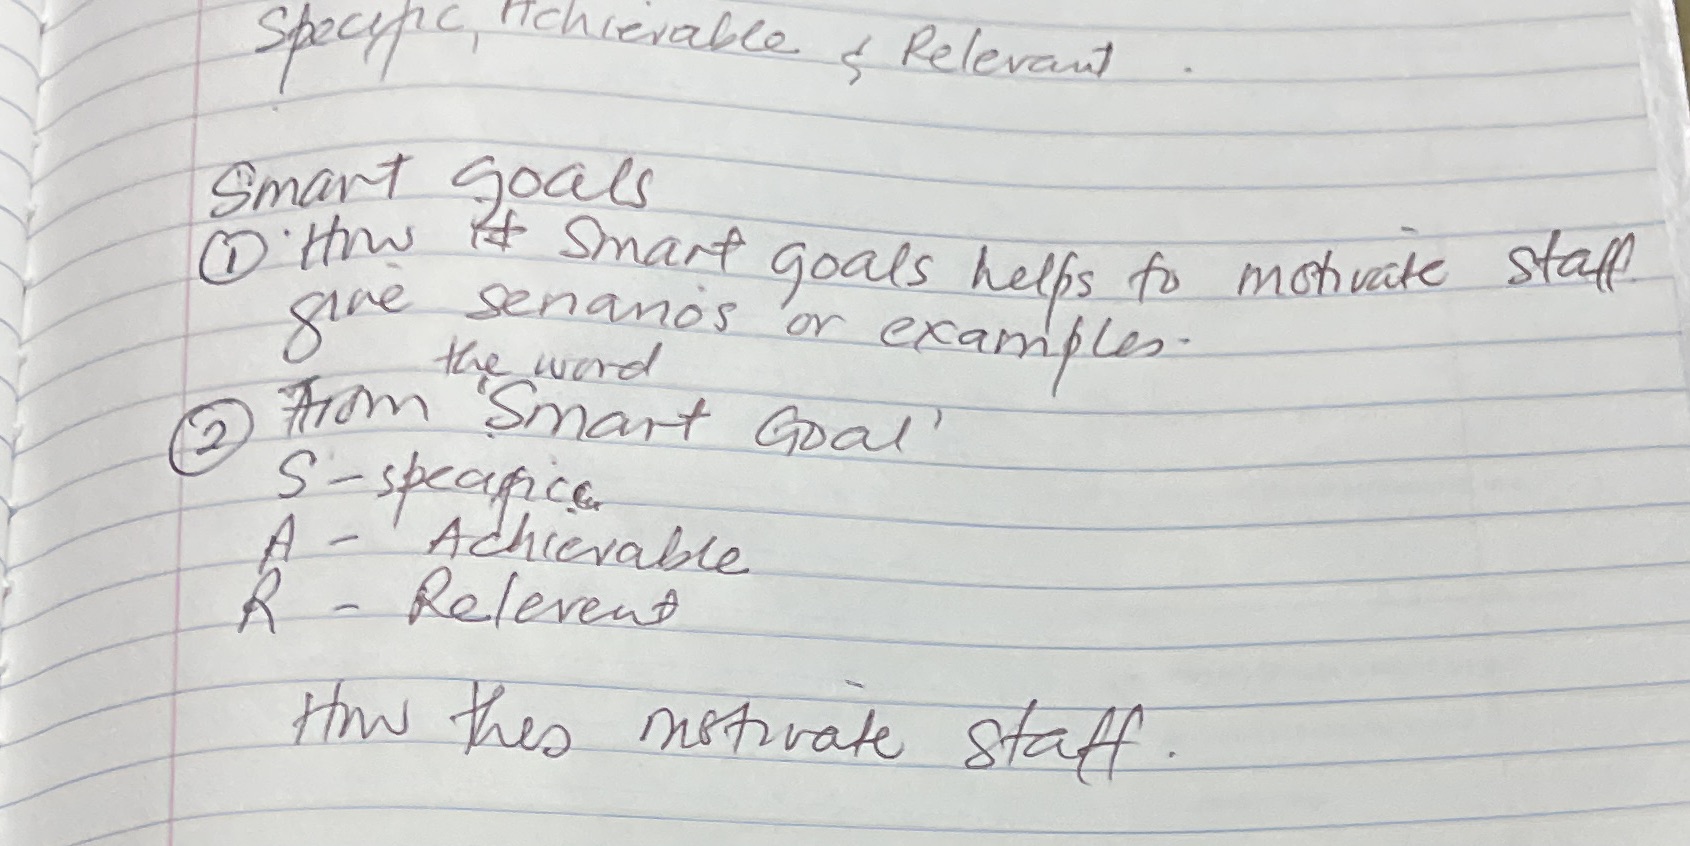 Specific, Achievable & Relevant.
Smart Goals
① How Smart goals helps to motivate staff.
give senario's or examples.
the word
② From 'Smart Goal'
S - specific
A - Achievable
R - Relevent
How thes motivate staff.